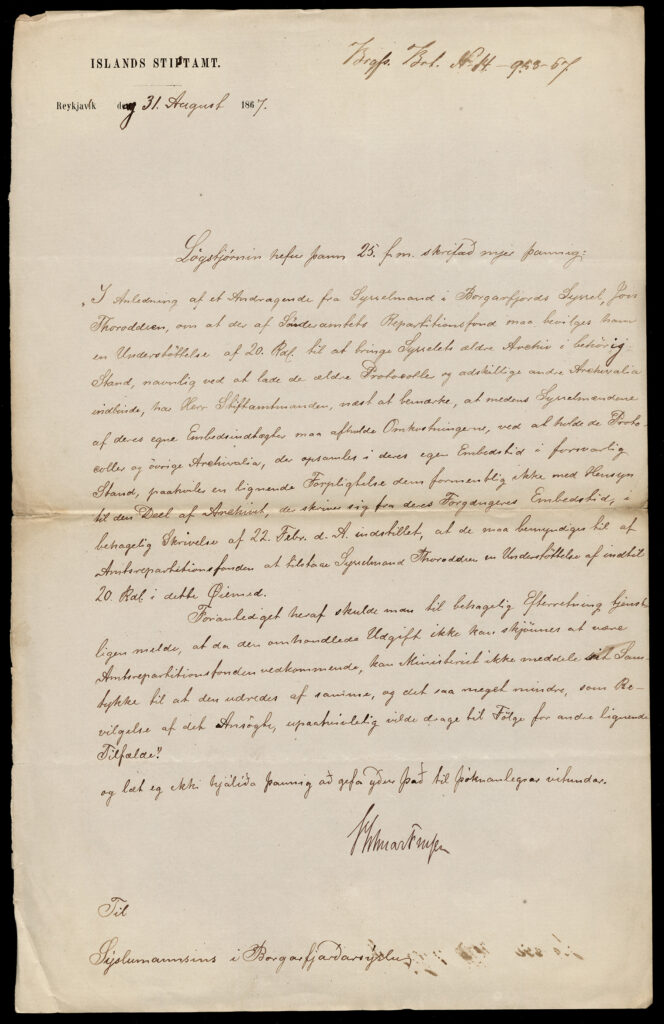 ISLANDS STIFTAMT.
Brgfs. Brl. No 4 - 953-67
Reykjavík den 31. August 1867.
Lögstjórnin hefir þann 25. f. m. skrifað mjer þannig:
"I Anledning af et Andragende fra Sysselmand i Borgarfjords Syssel, Jón
Thoroddsen, om at der af Sönderamtets Repartitionsfond maa bevilges ham
en Understöttelse af 20. Rdl. til at bringe Sysselets ældre Archiv i behörig
Stand, navnlig ved at lade de ældre Protocolle og adskillige andre Archivalia
indbinde, har Herr Stiftamtmanden, næst at bemærke, at medens Sysselmændene
af deres egne Embedsindtægter maa afholde Omkostningerne, ved at holde de Proto-
coller og övrige Archivalia, der opsamles i deres egen Embedstid i forsvarlig
Stand, paahviler en lignende Forpligtelse dem formentlig ikke med Hensyn
til den Deel af Archivet, der skriver sig fra deres Forgængeres Embedstid, i
behagelig Skrivelse af 22. Febr. d. A. indstillet, at de maa bemyndiges til af
Amtsrepartitionsfonden at tilstaae Sysselmand Thoroddsen en Understöttelse af indtil
20 Rdl. i dette Öiemed.
Foranlediget heraf skulde man til behagelig Efterretning tjenst-
ligen melde, at da den omhandlede Udgift ikke kan skjönnes at være
Amtsrepartitionsfonden vedkommende, kan Ministeriet ikke meddele sit Sam-
tykke til at den udredes af samme, og det saa meget mindre, som Be-
vilgelse af det Ansögte, upaatvivlelig vilde drage til Fölge for andre lignende
Tilfælde."
og læt eg ekki hjálíða þannig að gefa yður það til þóknanlegrar vitundar.
Hilmar Finsen
Til
Sýslumannsins i Borgarfjarðarsýslu